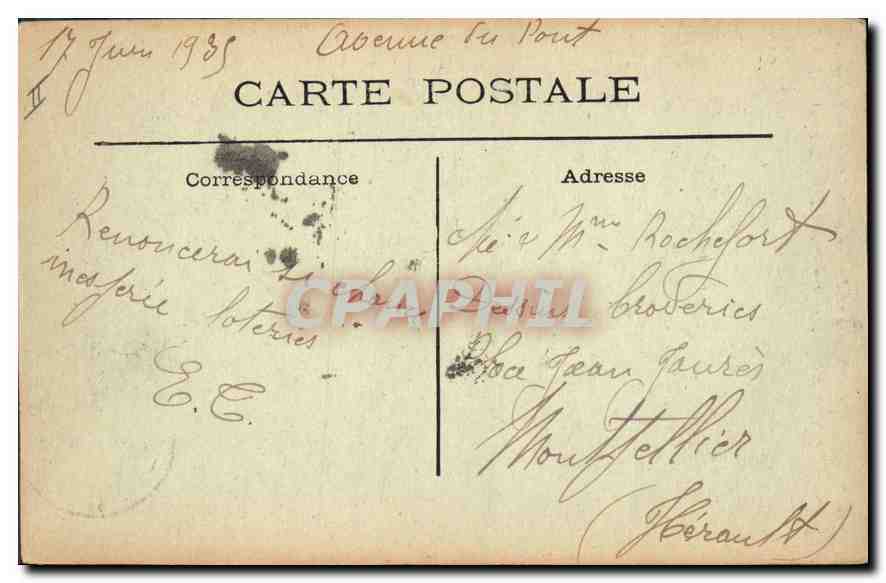 17 Juin 1935
Avenue du Pont
II
CARTE POSTALE
Correspondance
Renoncerai si
loteries
E. C.
Adresse
Mme Rochefort
Dessins broderies
Place Jean Jaurès
Montpellier
(Hérault)
CPAPHIL